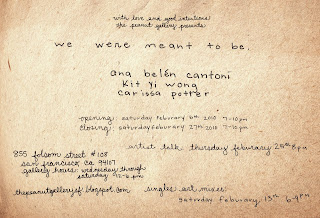 with love and good intentions
the peanut gallery presents
we were meant to be.
ana belén cantoni
kit yi wong
carissa potter
opening: saturday feburary 6th 2010 7-10pm
closing: saturday feburary 27th 2010 7-10pm
artist talk thursday feburary 25th 8pm
855 folsom street #108
san francisco, ca 94107
gallery hours wednesday through
saturday 12-6 pm
thepeanutgallerysf.blogspot.com
singles art mixer
saturday feburary 13th 6-9pm